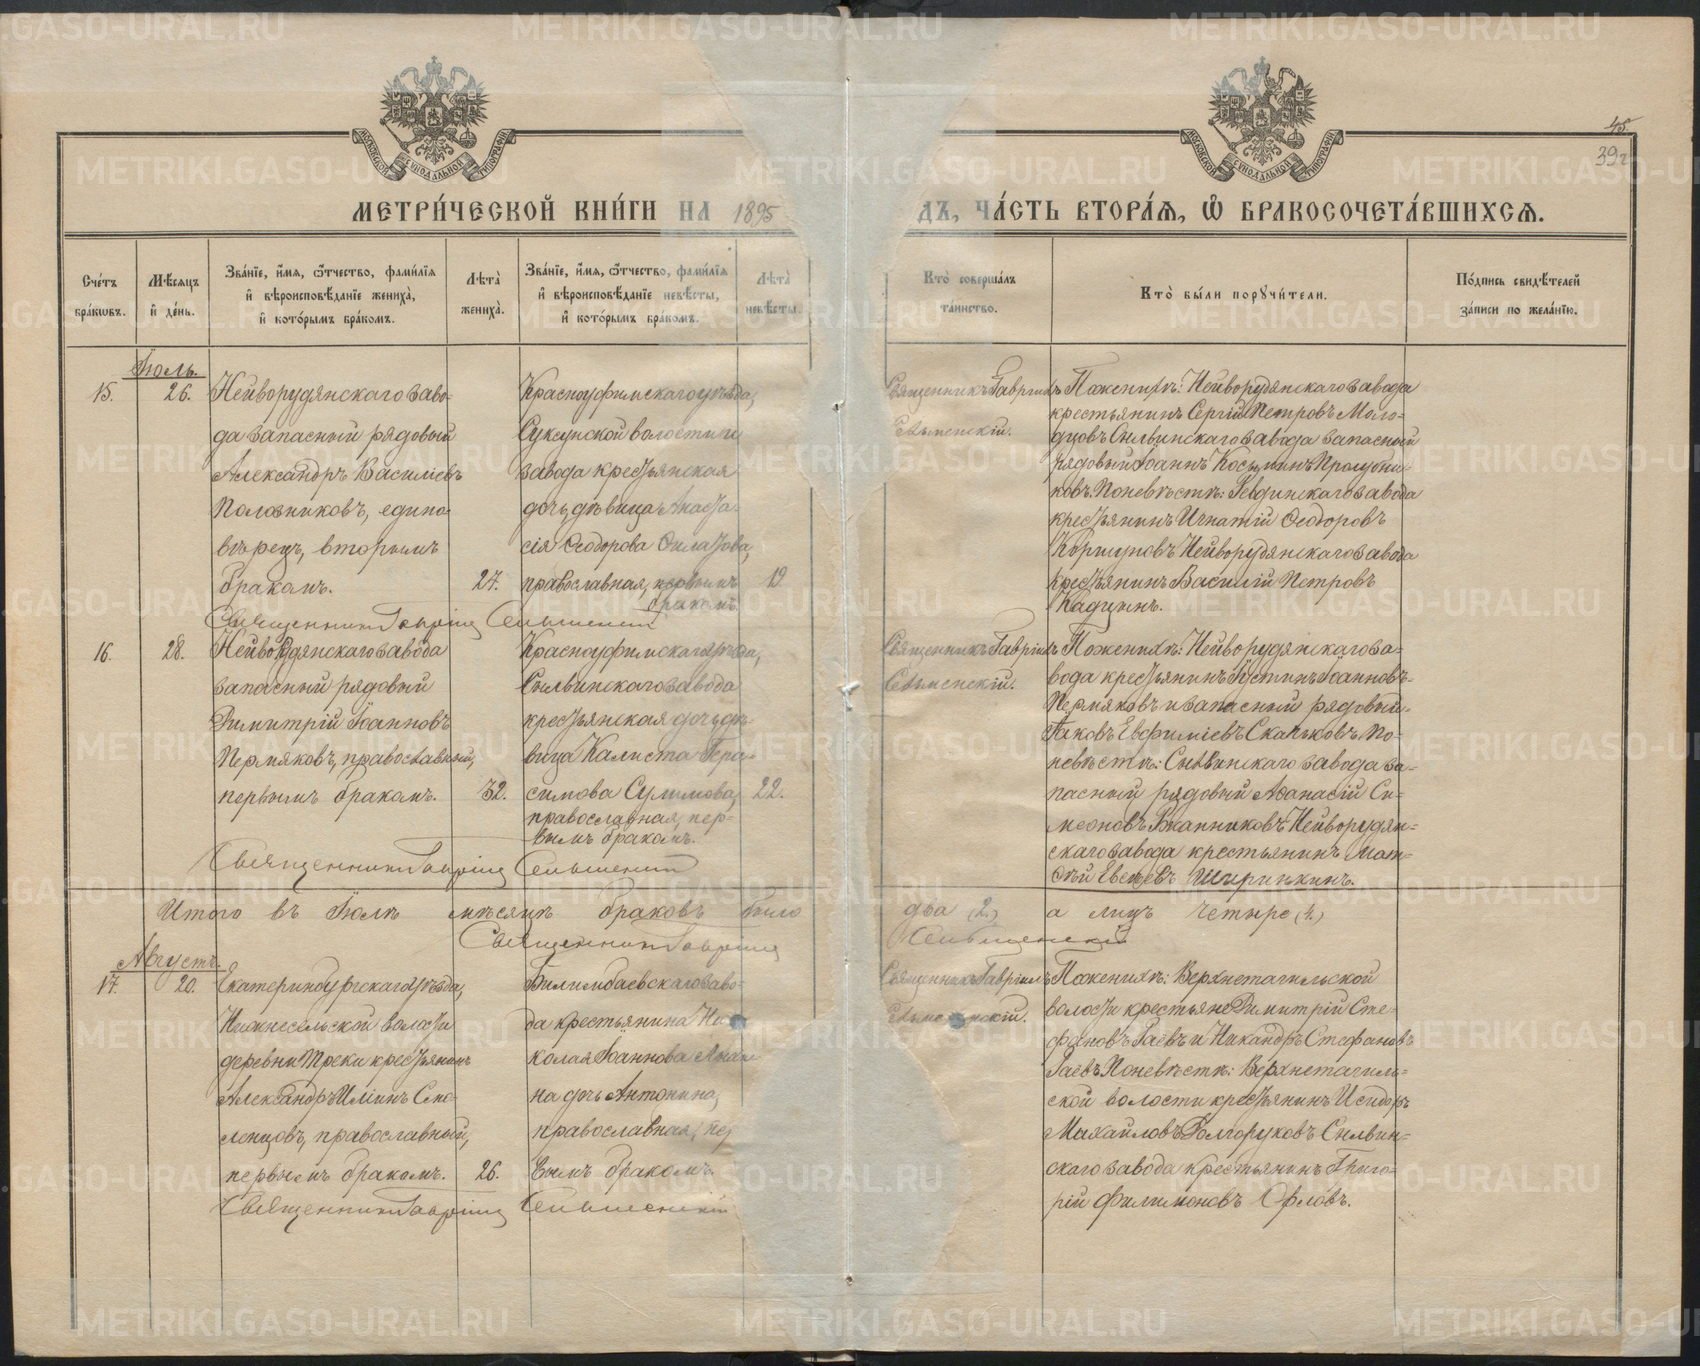 METRIKI.GASO-URAL.RU
45.
39г
МОСКОВСКОЙ СѴНОДАЛЬНОЙ ТИПОГРАФІИ
МОСКОВСКОЙ СѴНОДАЛЬНОЙ ТИПОГРАФІИ
МЕТРИ́ЧЕСКОЙ КНИ́ГИ НА 1895
ДЪ, ЧА́СТЬ ВТОРА́Я, Ѡ БРАКОСОЧЕТА́ВШИХСЯ.
Сче́тъ бра́кѡвъ.
Мѣ́сяцъ и҆ де́нь.
Зва́нїе, и҆́мя, ѻ҆́тчество, фами́лїя и҆ вѣроисповѣ́данїе жениха̀, и҆ кото́рымъ бра́комъ.
Лѣта̀ жениха̀.
Зва́нїе, и҆́мя, ѻ҆́тчество, фами́лїя и҆ вѣроисповѣ́данїе невѣ́сты, и҆ кото́рымъ бра́комъ.
Лѣта̀ невѣ́сты.
Кто̀ соверша́лъ та́инство.
Кто̀ бы́ли порꙋчи́тели.
По́дпись свидѣ́телей за́писи по жела́нїю.
Іюль.
15.
26.
Нейворудянскаго заво-
да запасный рядовый
Александръ Василіевъ
Половниковъ, едино-
вѣрецъ, вторымъ
бракомъ.
27.
Красноуфимскаго уѣзда,
Суксунской волости и
завода крестьянская
дочь, дѣвица Анаста-
сія Ѳеодорова
православная, первымъ
бракомъ.
19
Священникъ Гавріилъ
Сельменскій.
По женихѣ: Нейворудянскаго завода
крестьянинъ Сергій Петровъ Моло-
дцовъ Сылвинскаго завода запасный
рядовый Іоаннъ Косминъ
ковъ. По невѣстѣ: Ревдинскаго завода
крестьянинъ Игнатій Ѳеодоровъ
Коршуновъ Нейворудянскаго завода
крестьянинъ Василій Петровъ
Кадцынъ.
Священникъ Гавріилъ Сельменскій
16.
28.
Нейворудянскаго завода
запасный рядовый
Димитрій Іоанновъ
Пермяковъ, православный,
первымъ бракомъ.
32.
Красноуфимскаго уѣзда,
Сылвинскаго завода
крестьянская дочь дѣ-
вица Калиста Гера-
симова Сулимова,
православная, пер-
вымъ бракомъ.
22.
Священникъ Гавріилъ
Сельменскій.
По женихѣ: Нейворудянскаго за-
вода крестьянинъ Іустинъ Іоанновъ
Пермяковъ и запасный рядовый
Іаковъ Евфиміевъ Скачковъ. По
невѣстѣ: Сылвинскаго завода за-
пасный рядовый Аѳанасій Си-
меоновъ Нейворудян-
скаго завода крестьянинъ Мат-
ѳей Ширинкинъ.
Священникъ Гавріилъ Сельменскій
Итого въ Іюлѣ мѣсяцѣ браковъ было
два (2.) а лицъ четыре (4.)
Священникъ Гавріилъ
Сельменскій
Августъ.
17.
20.
Екатеринбургскаго уѣзда,
Нижнесельской волости
деревни Треки крестьянинъ
Александръ Иліинъ Смо-
ленцовъ, православный,
первымъ бракомъ.
26.
Билимбаевскаго заво-
да крестьянина Ни-
колая Іоаннова
на дочь Антонина,
православная, пер
вымъ бракомъ.
Священникъ Гавріилъ
Сельменскій.
По женихѣ: Верхнетагильской
волости крестьяне Димитрій Сте-
фановъ Гаевъ и Никандръ Стефановъ
Гаевъ. По невѣстѣ: Верхнетагиль-
ской волости крестьянинъ Исидоръ
Михайловъ Долгоруковъ Сылвин-
скаго завода крестьянинъ Григо-
рій Филимоновъ Орловъ.
Священникъ Гавріилъ Сельменскій